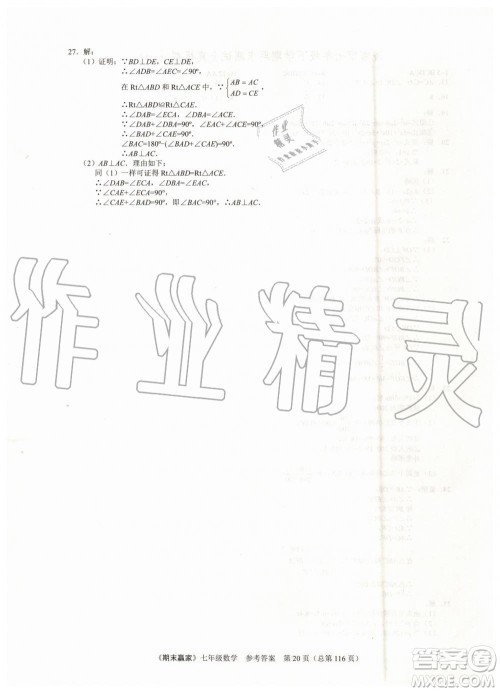 27. 解：
（1）证明：∵BD⊥DE，CE⊥DE，
∴∠ADB=∠AEC=90°，
在 Rt△ABD 和 Rt△ACE 中，∵{AB=AC
AD=CE，
∴Rt△ABD≌Rt△CAE.
∴∠DAB=∠ECA，∠DBA=∠EAC.
∵∠DAB+∠DBA=90°，∠EAC+∠ACE=90°，
∴∠BAD+∠CAE=90°.
∠BAC=180°-(∠BAD+∠CAE)=90°.
∴AB⊥AC.
（2）AB⊥AC. 理由如下：
同（1）一样可证得 Rt△ABD≌Rt△ACE.
∴∠DAB=∠ECA，∠DBA=∠EAC，
∵∠CAE+∠ECA=90°，
∴∠CAE+∠BAD=90°，即∠BAC=90°，∴AB⊥AC.
作业
精灵
作业精灵
《期末赢家》七年级数学 参考答案 第 20 页（总第 116 页）